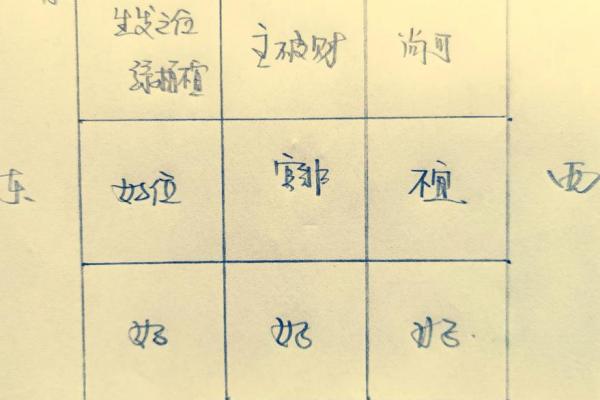 生发之位
绿植宜
主破财
尚可
东
好位
不宜
西
好
好
好